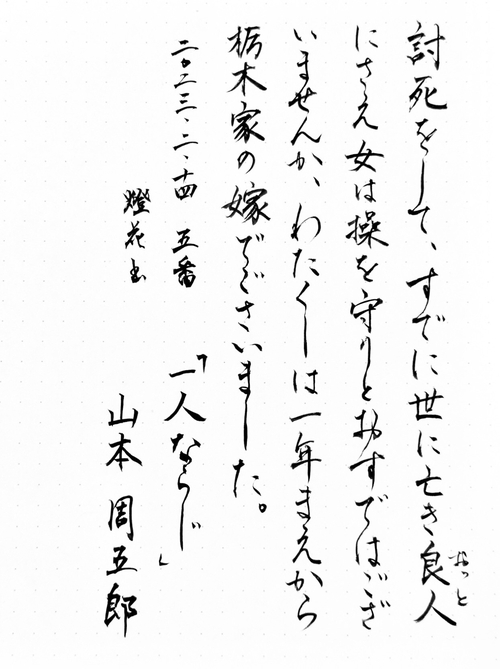 討死をして、すでに世に亡き良人
おっと
にさえ女は操を守りとおすではござ
いませんか、わたくしは一年まえから
栃木家の嫁でございました。
二〇二三.二.十四 五番
燈花書
「一人ならじ」
山本周五郎